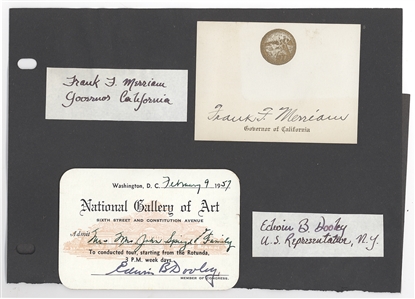 Frank F. Merriam
Governor California
Frank F. Merriam
Governor of California
Washington, D. C. February 9 1957
National Gallery of Art
SIXTH STREET AND CONSTITUTION AVENUE
Admit Mr & Mrs John & Family
To conducted tour, starting from the Rotunda,
3 P.M. week days
Edwin B Dooley
MEMBER OF CONGRESS.
Edwin B. Dooley
U.S. Representative, N.Y.